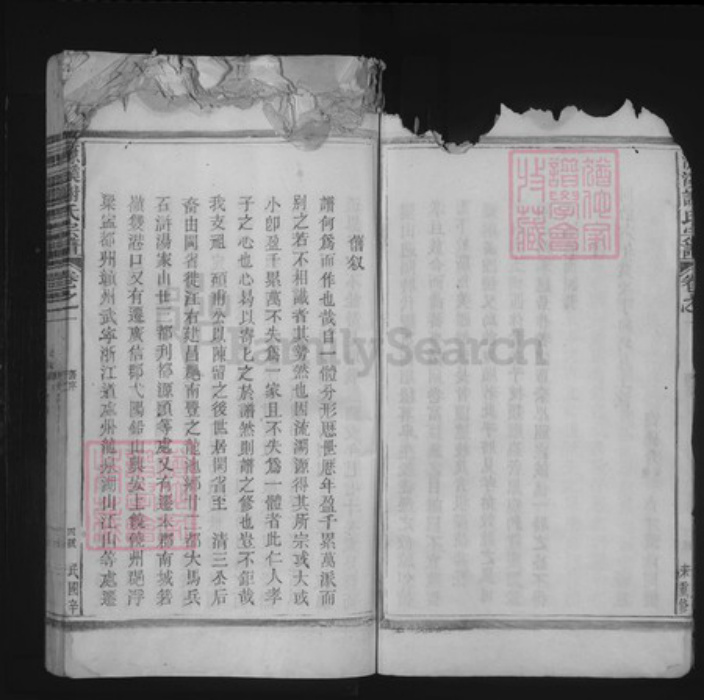 舊叙
譜何爲而作也哉自一體分形歷世歷年盈千累萬派而
別之若不相識者其勢然也因流溯源得其所宗大或
小卽盈千累萬不失爲一家且不失爲一體者此仁人孝
子之心也心曷以寄上之於譜然則譜之修也豈不鉅哉
我支祖 碩甫公以陳留之後世居閩省至 清三丞后
裔由閩省徙江右建昌 南豐之龍池鄉廿二都大馬兵
石滸湯家山廿三都刋都源頭等處又有遷本郡南城
嶺 港口又有遷廣信郡弋陽鉛山興安上饒饒州 浮
梁 都州 州武寧浙江道處州龍泉湖山江山等處遷
氏宗譜
卷之一
舊序
民國辛
氏宗譜
卷之
未 修
FamilySearch
譜學會
收藏